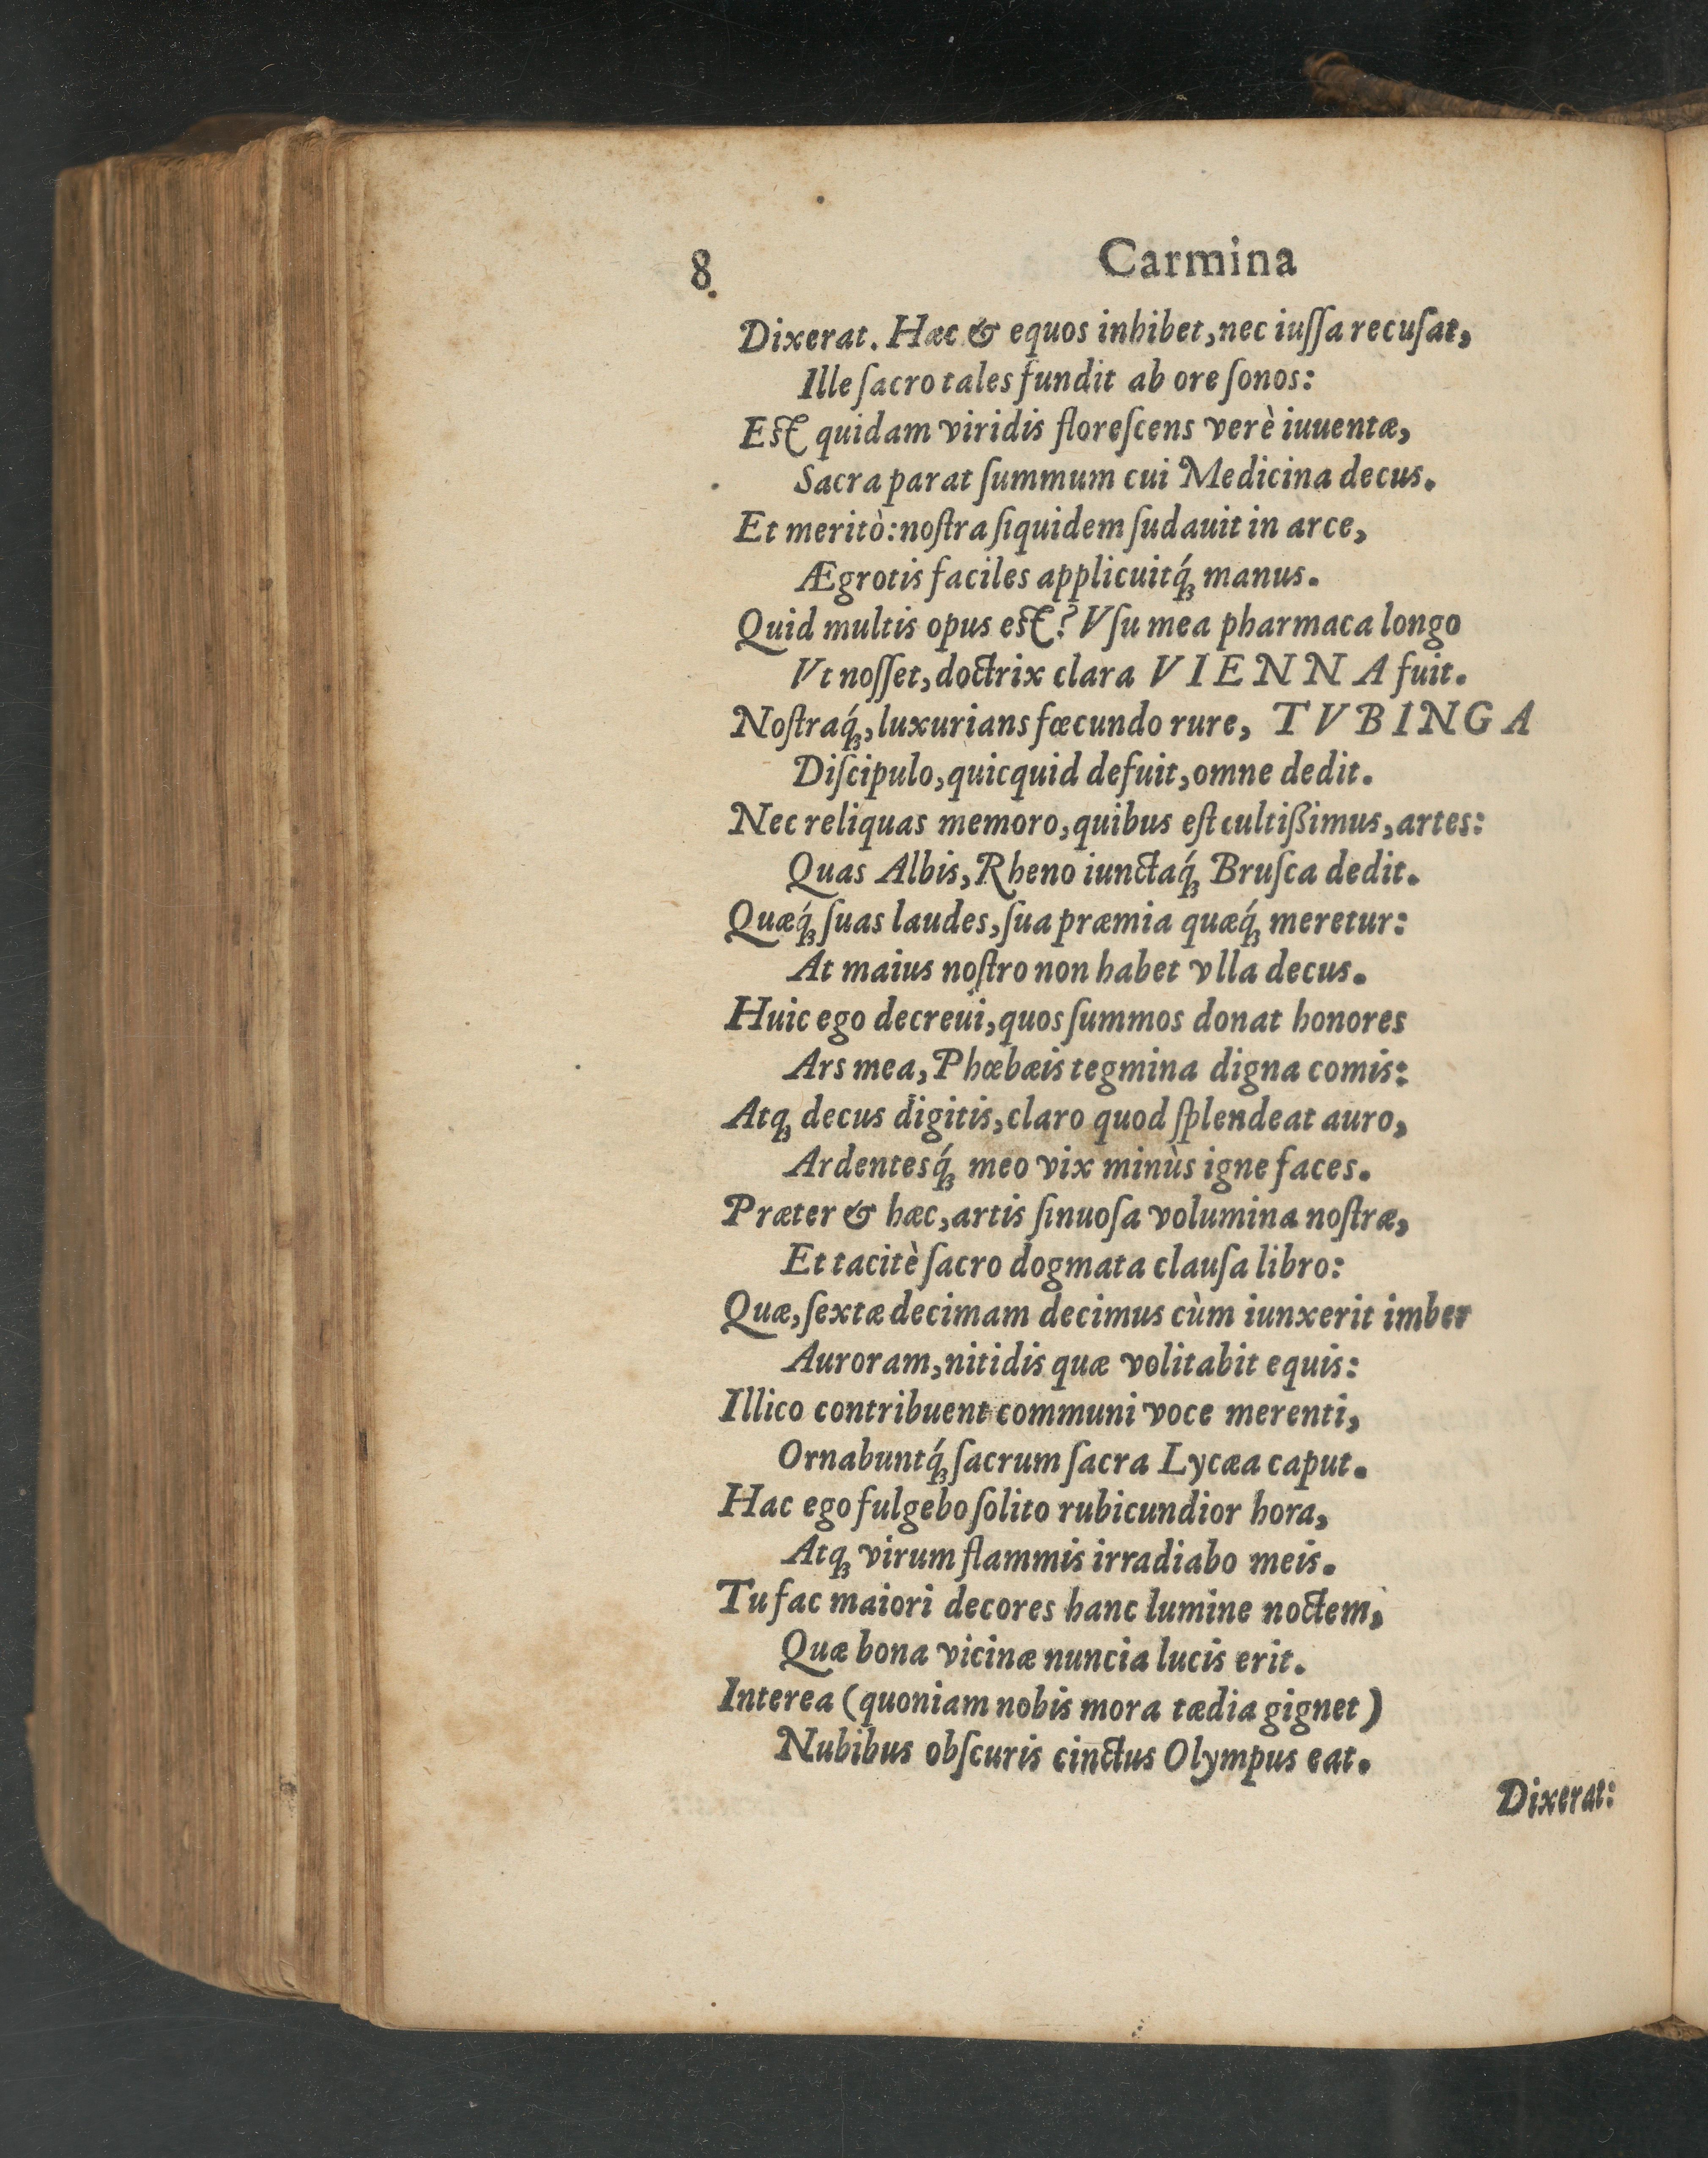 8. Carmina
Dixerat. Hæc & equos inhibet, nec iuſſa recuſat,
Ille ſacro tales fundit ab ore ſonos:
Eſt quidam viridis floreſcens verè iuuentæ,
Sacra parat ſummum cui Medicina decus.
Et meritò: noſtra ſiquidem ſudauit in arce,
Ægrotis faciles applicuitq́ꝫ manus.
Quid multis opus eſt? Vſu mea pharmaca longo
Vt noſſet, doctrix clara VIENNA fuit.
Noſtraq́ꝫ, luxurians fœcundo rure, TVBINGA
Diſcipulo, quicquid defuit, omne dedit.
Nec reliquas memoro, quibus eſt cultißimus, artes:
Quas Albis, Rheno iunctaq́ꝫ Bruſca dedit.
Quæq́ꝫ ſuas laudes, ſua præmia quæq́ꝫ meretur:
At maius noſtro non habet vlla decus.
Huic ego decreui, quos ſummos donat honores
Ars mea, Phœbæis tegmina digna comis:
Atqꝫ decus digitis, claro quod ſplendeat auro,
Ardentesq́ꝫ meo vix minùs igne faces.
Præter & hæc, artis ſinuoſa volumina noſtræ,
Et tacitè ſacro dogmata clauſa libro:
Quæ, ſextæ decimam decimus cùm iunxerit imber
Auroram, nitidis quæ volitabit equis:
Illico contribuent communi voce merenti,
Ornabuntq́ꝫ ſacrum ſacra Lycæa caput.
Hac ego fulgebo ſolito rubicundior hora,
Atqꝫ virum flammis irradiabo meis.
Tu fac maiori decores hanc lumine noctem,
Quæ bona vicinæ nuncia lucis erit.
Interea (quoniam nobis mora tædia gignet)
Nubibus obſcuris cinctus Olympus eat.
Dixerat: